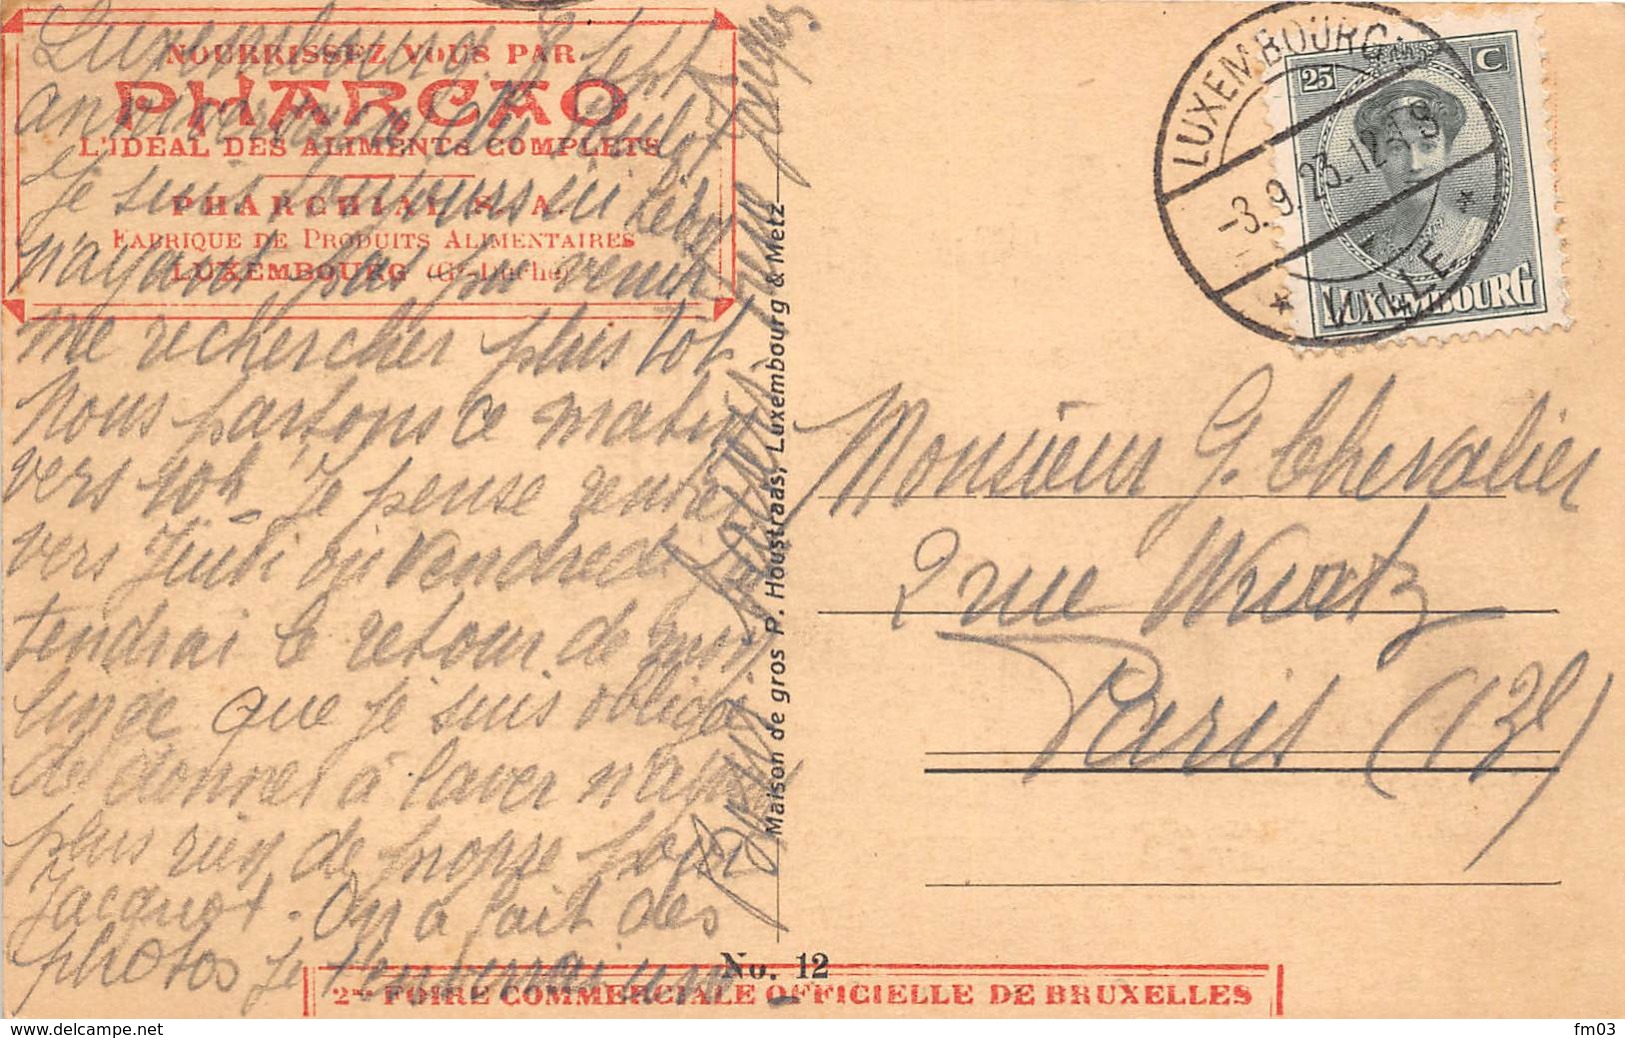 NOURRISSEZ VOUS PAR
PHARCAO
L'IDEAL DES ALIMENTS COMPLETS
PHARCHIAL S. A.
FABRIQUE DE PRODUITS ALIMENTAIRES
LUXEMBOURG (Gd-Duché)
Luxembourg 3 Sept
Je suis toujours ici
n'ayant pas pu venir
me rechercher plus tôt.
Nous partons ce matin
vers 10h. Je pense rentrer
vers Jeudi ou Vendredi
tendrai le retour de mon
linge que je suis obligé
de donner à laver n'ayant
plus rien de propre pour
Jacquot. On a fait des
photos je t'enverrai un
Maison de gros P. Houstraas, Luxembourg & Metz
LUXEMBOURG
-3.9.23.12
VILLE
25 C
LUXEMBOURG
Monsieur G. Chevalier
2 rue Wurtz
Paris (13e)
No. 12
2me FOIRE COMMERCIALE OFFICIELLE DE BRUXELLES
fm03